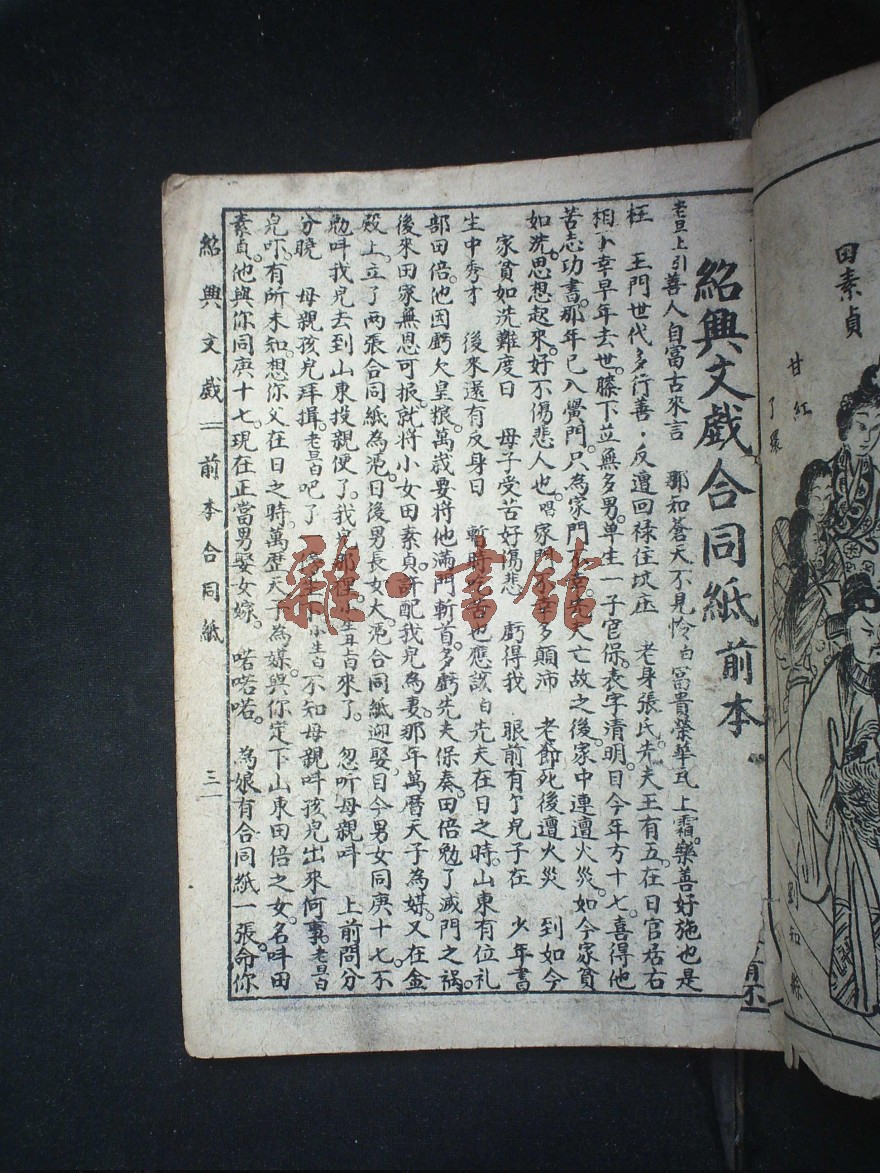 紹興文戲合同紙前本
老旦上引善人自富古來言　那知蒼天不見怜白富貴榮華瓦上霜。樂善好施也是
枉　王門世代多行善．反遭回禄住坟庄　老身張氏。先夫王有五。在日官居右
相。卜幸早年去世。膝下並無多男。单生一子官保。表字清明。目今年方十七。喜得他
苦志功書。那年已入黌門。只為家門不幸。先夫亡故之後。家中連遭火災。如今家貧
如洗。思想起來。好不傷悲人也。唱家門不幸多顛沛　老爺死後遭火災　到如今
家貧如洗難度日　母子受苦好傷悲　虧得我　眼前有个兒子在　少年書
生中秀才　後來還有反身日　暫時吃苦也應該白先夫在日之時。山東有位礼
部田倍。他因虧欠皇粮。萬歲要將他滿門斬首。多虧先夫保奏。田倍勉了滅門之禍。
後來田家無恩可报。就將小女田素貞。許配我兒為妻。那年萬曆天子為媒。又在金
殿上。立了两張合同紙為憑。日後男長女大。憑合同紙迎娶。目今男女同庚十七。不
勉呌我兒去到山東投親便了。我兒那裡。小生上白來了。忽听母親呌　上前問分
分曉　母親孩兒拜揖。老旦白吧了　小生白不知母親呌孩兒出來何事。老旦白
兒吓。有所未知。想你父在日之時。萬歷天子為媒。與你定下山東田倍之女。名呌田
素貞。他與你同庚十七。現在正當男娶女嫁。喏喏喏。為娘有合同紙一張。命你
紹興文戲　前本合同紙　三
田素貞
甘紅
了環
劉知縣
雜·書館